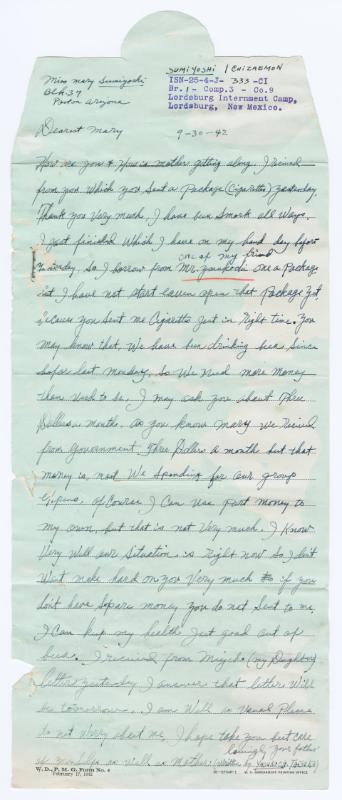 Miss Mary Sumiyoshi
Blk 37
Poston Arizona
SUMIYOSHI / CHIZAEMON
ISN-25-4-J- 333 -CI
Br.1- Comp.3 - Co.9
Lordsburg Internment Camp,
Lordsburg, New Mexico.
Dearest Mary
9-30-42
How are you & How is mother getting along. I recived
from you which you sent a Package (Cigaretto) yesterday.
Thank you Very much, I have bun smork all ways.
I just finished which I have on my hand day before
one of my friend
yesterday. So I borrow from Mr. one a Package
but I have not start even open that Package yet
because you sent me Cigaretto just in right time. You
may know that, We have bun drinking bea since
last monday, So we need more money
than used to be. I may ask you about three
Dollars a month. As you know mary we recived
from Government three Dollars a month but that
money is, most We spending for our group
of Course I Can use part money to
my own, but that is not Very much. I Know
Very Well our situation is right now So I don't
Want make hard on you Very much if you
don't have spare money you do not sent to me.
I Can kup my health just good out of
bea. I recived from (my Daughter)
letter yesterday I answer that letter Will
be tomorrow. I am Well as usual Please
to not Worry about me, I hope take you best care
lovingly your father
of as well as Mother. (written by
W. D., P. M. G. Form No. 4
February 17, 1942
U. S. GOVERNMENT PRINTING OFFICE